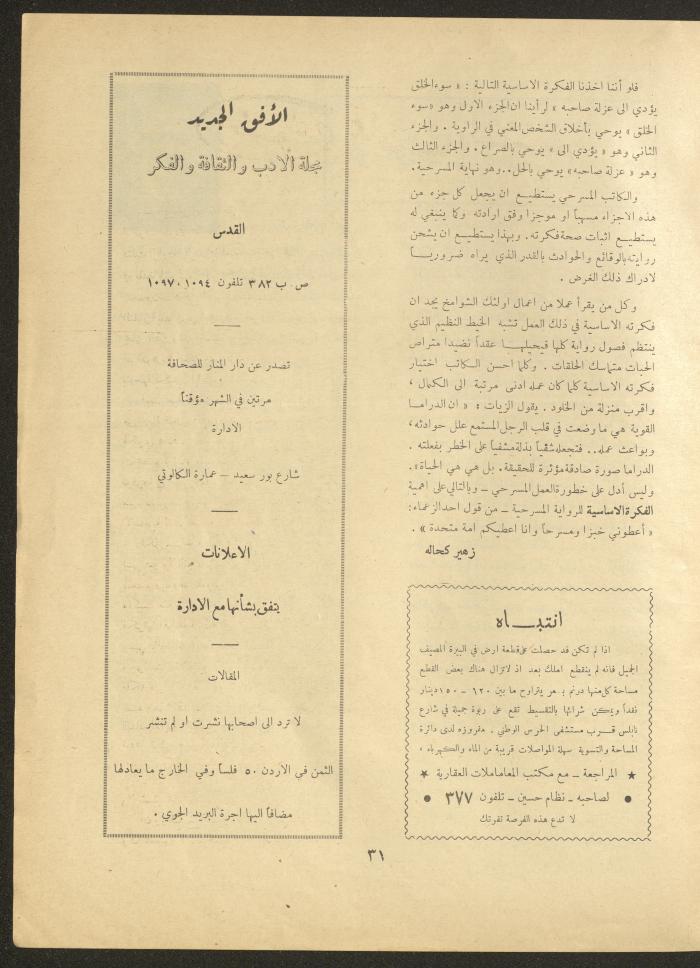 فلو أننا اخذنا الفكرة الاساسية التالية : « سوء الخلق
يؤدي الى عزلة صاحبه » لرأينا ان الجزء الاول وهو «سوء
الخلق » يوحي بأخلاق الشخص المعني في الراوية . والجزء
الثاني وهو « يؤدي الى » يوحي بالصراع . والجزء الثالث
وهو « عزلة صاحبه» يوحي بالحل.. وهو نهاية المسرحية .
والكاتب المسرحي يستطيع ان يجعل كل جزء من
هذه الاجزاء مسهباً او موجزا وفق ارادته وكما ينبغي له
يستطيع اثبات صحة فكرته . وبهذا يستطيع ان يشحن
روايته بالوقائع والحوادث بالقدر الذي يراه ضرورياً
لادراك ذلك الغرض .
وكل من يقرأ عملا من اعمال اولئك الشوامخ يجد ان
فكرته الاساسية في ذلك العمل تشبه الخيط النظيم الذي
ينتظم فصول رواية كلها فيحيلها عقداً نضيدا متراص
الحبات متماسك الحلقات . وكلما احسن الكاتب اختيار
فكرته الاساسية كلما كان عمله ادنى مرتبة الى الكمال ،
واقرب منزلة من الخلود . يقول الزيات : « ان الدراما
القوية هي ما وضعت في قلب الرجل المستمع علل حوادثه،
وبواعث عمله.. فتجعله شقياً بذلة مشفياً على الخطر بفعلته .
الدراما صورة صادقة مؤثرة للحقيقة . بل هي هي الحياة».
وليس أدل على خطورة العمل المسرحي – وبالتالي على اهمية
الفكرة الاساسية للرواية المسرحية – من قول احد الزعماء:
« أعطوني خبزا ومسرحاً وانا اعطيكم امة متحدة » .
زهير كحاله
انتباه
اذا لم تكن قد حصلت على قطعة ارض في البيرة المصيف
الجميل فانه لم ينقطع املك بعد اذ لا تزال هناك بعض القطع
مساحة كل منها درنم بسعر يتراوح ما بين ٦٢٠ – ١٥٠ دينار
نقداً ويمكن شرائها بالتقسيط تقع على ربوة جميلة في شارع
نابلس قرب مستشفى الحرس الوطني . مفروزه لدى دائرة
المساحة والتسوية سهلة المواصلات قريبة من الماء والكهرباء ،
★ المراجعة – مع مكتب المعاملات العقارية ★
● لصاحبه – نظام حسين – تلفون ٣٧٧ ●
لا تدع هذه الفرصة تفوتك
الأفق الجديد
مجلة الادب والثقافة والفكر
القدس
ص ب ٣٨٢ تلفون ١٠٩٤ ، ١٠٩٧
تصدر عن دار المنار للصحافة
مرتين في الشهر مؤقتاً
الادارة
شارع بور سعيد – عمارة الكالوتي
الاعلانات
يتفق بشأنها مع الادارة
المقالات
لا ترد الى اصحابها نشرت او لم تنشر
الثمن في الاردن ٥٠ فلساً وفي الخارج ما يعادلها
مضافاً اليها اجرة البريد الجوي .
٣١